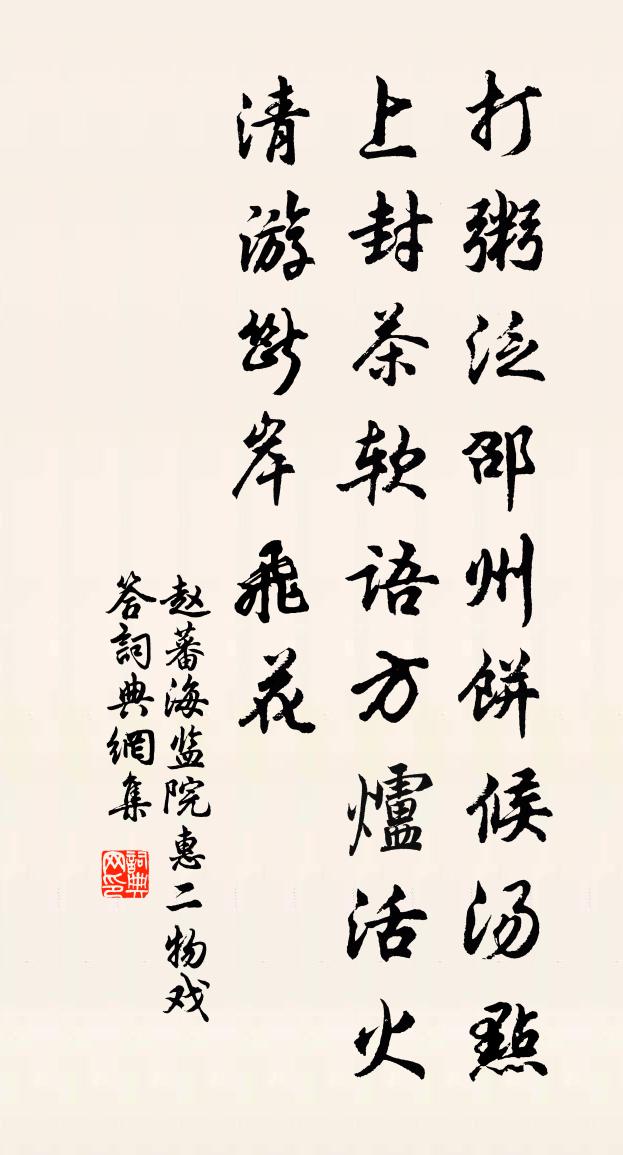 打粥泛邵州餅候汤點
上封茶软语方爐活火
清游断岸飛花
赵蕃海监院惠二物戏
答詞典網集
詞典网印